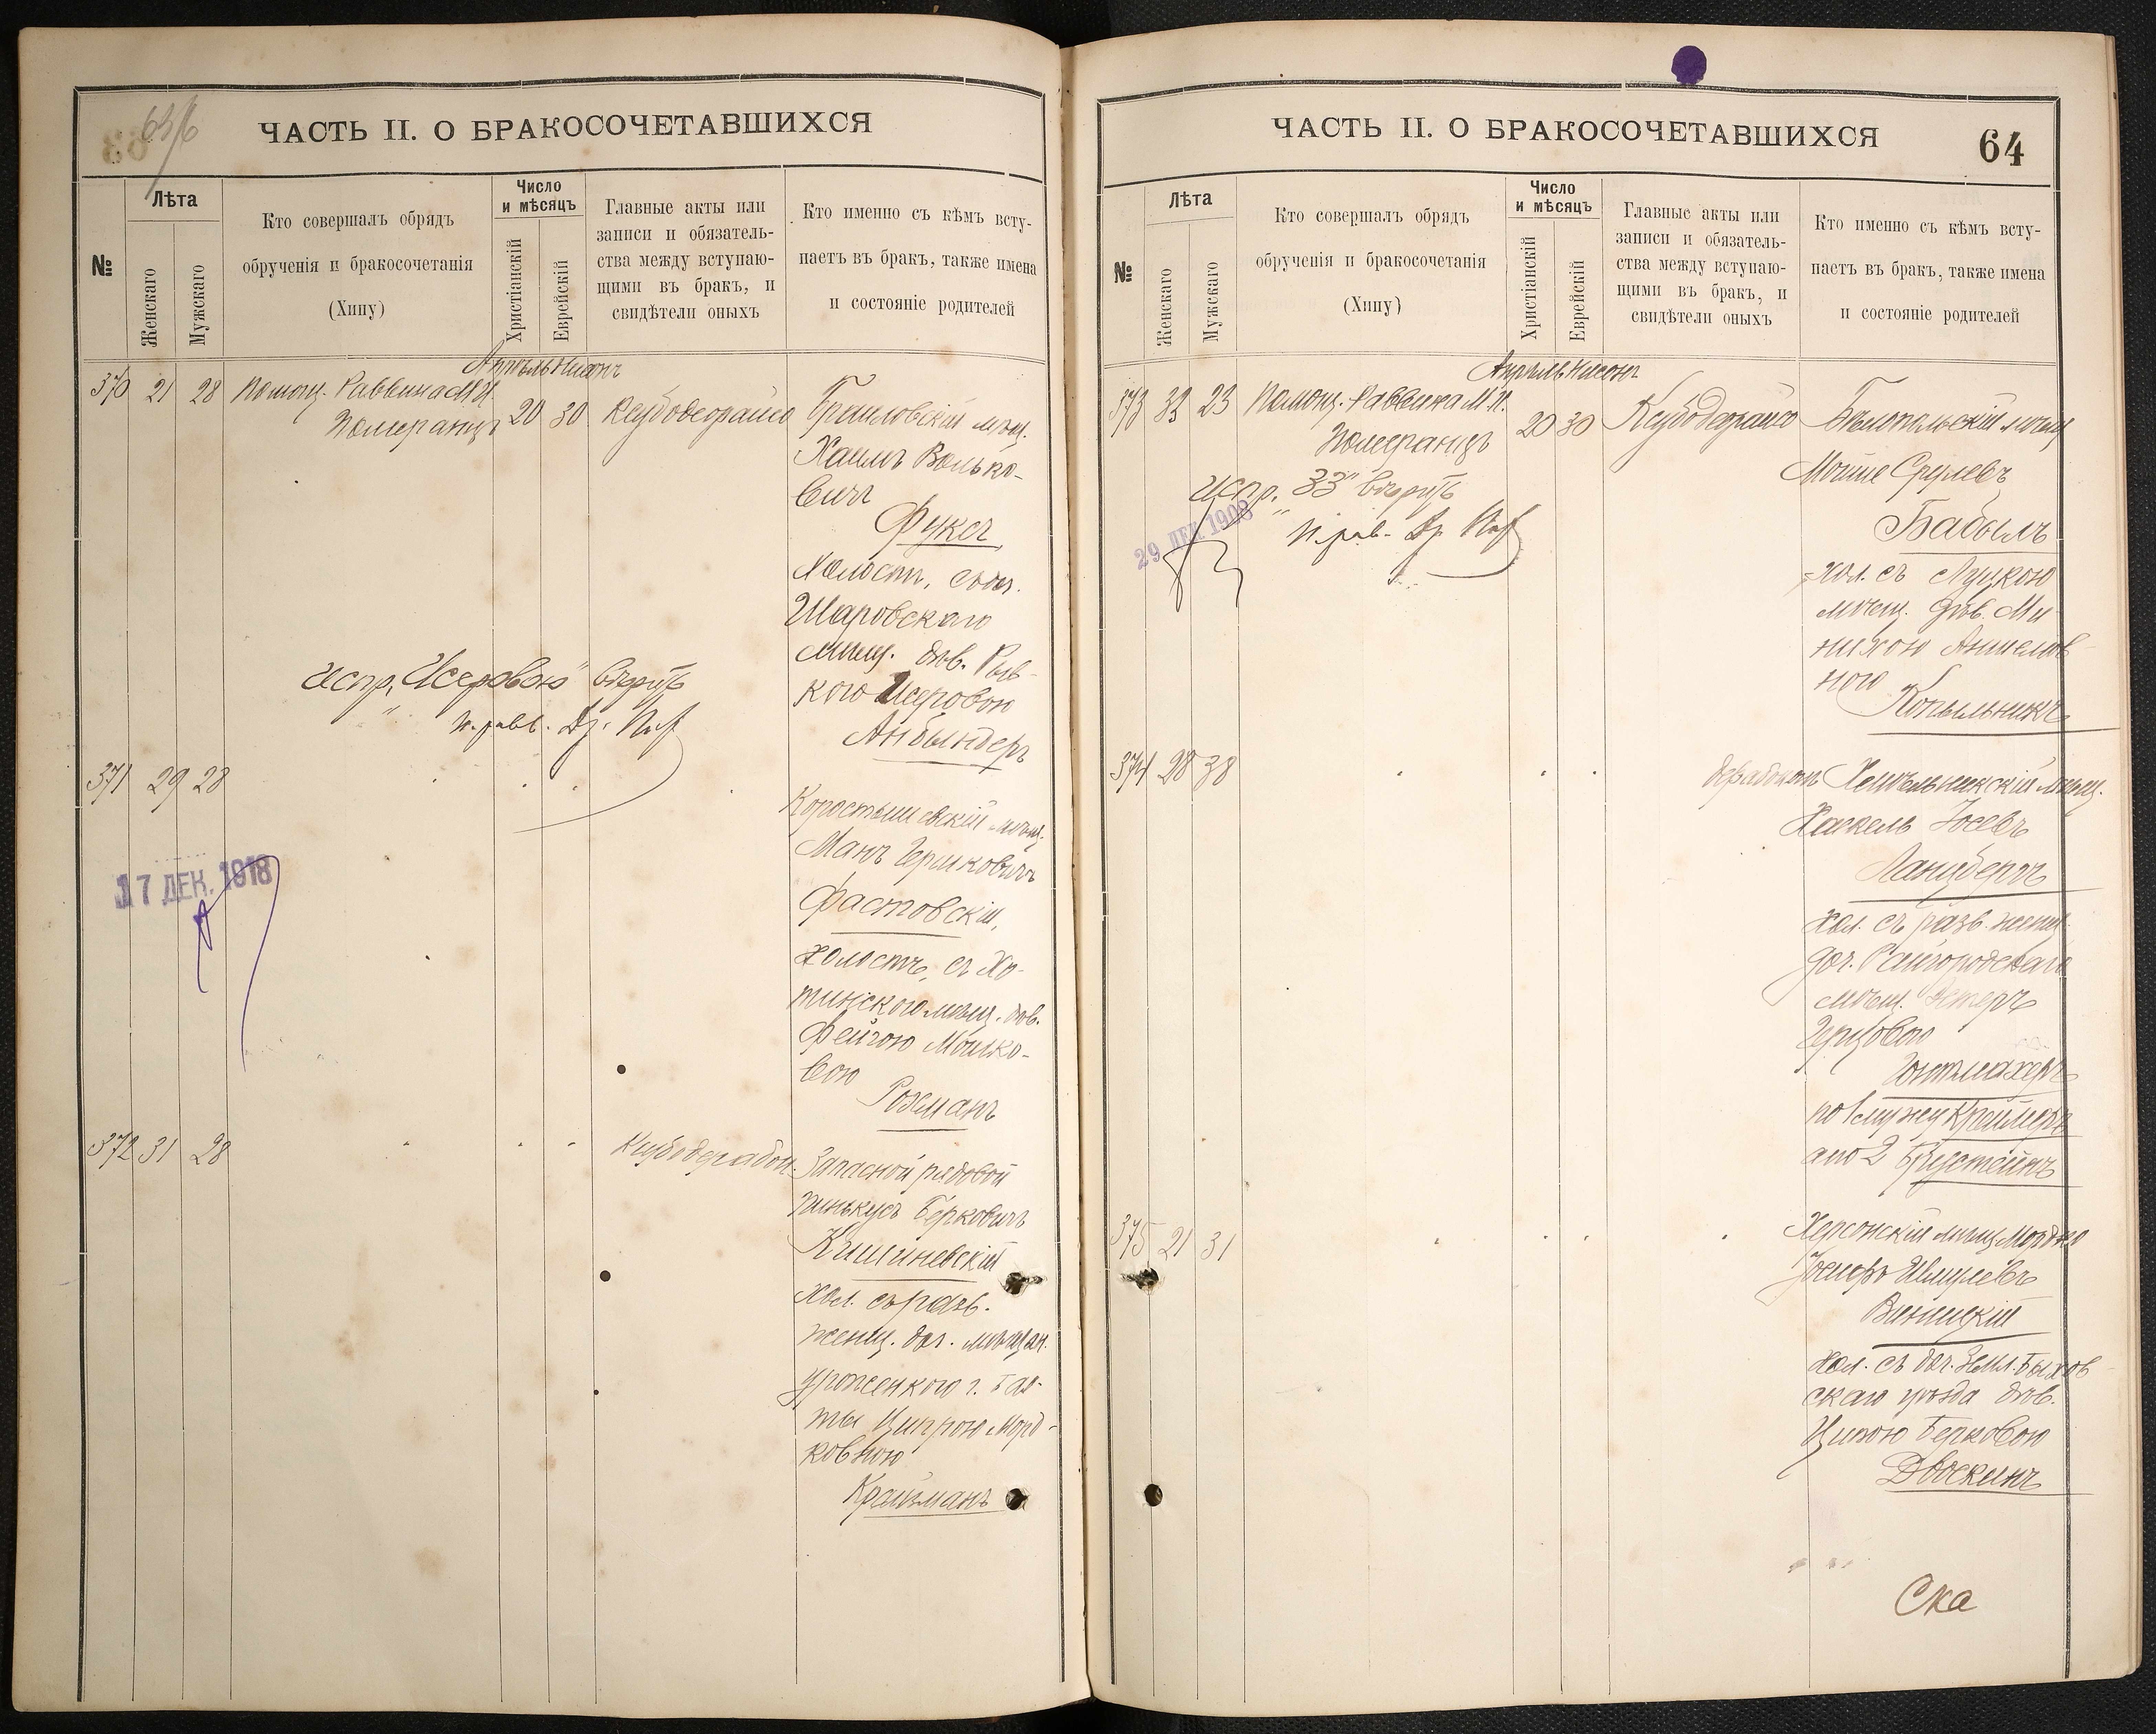 63/б
ЧАСТЬ II. О БРАКОСОЧЕТАВШИХСЯ
№
Лѣта
Женскаго
Мужскаго
Кто совершалъ обрядъ
обрученія и бракосочетанія
(Хипу)
Число
и мѣсяцъ
Христіанскій
Еврейскій
Главные акты или
записи и обязатель-
ства между вступаю-
щими въ бракъ, и
свидѣтели оныхъ
Кто именно съ кѣмъ всту-
паетъ въ бракъ, также имена
и состояніе родителей
Апрѣль Нисонъ
370 21 28 Помощ. Раввина М.И.
Померанцъ 20 30
Браиловскій мѣщ.
Хаимъ Волько-
вичъ
Фуксъ,
холостъ, съ доч.
Шаровскаго
мѣщ. дѣв. Рыв-
кою Исеровою
Анбиндеръ
испр. „Исеровою" вѣрить
п. равв. Др.
371 29 28
Коростышевскій мѣщ.
Манъ Гершковичъ
Фастовскій,
холостъ, съ Хо-
тинскою мѣщ. дѣв.
Фейгою Мошко-
вою
Рохманъ
17 ДЕК. 1918
372 31 28
Запасной рядовой
Пинькусъ Берковичъ
Кишиневскій
хол. съ разв.
женщ. доч. мѣщан.
уроженкою г. Бал-
ты Ципрою Морд-
ковною
Крайзманъ
ЧАСТЬ II. О БРАКОСОЧЕТАВШИХСЯ
64
№
Лѣта
Женскаго
Мужскаго
Кто совершалъ обрядъ
обрученія и бракосочетанія
(Хипу)
Число
и мѣсяцъ
Христіанскій
Еврейскій
Главные акты или
записи и обязатель-
ства между вступаю-
щими въ бракъ, и
свидѣтели оныхъ
Кто именно съ кѣмъ всту-
паетъ въ бракъ, также имена
и состояніе родителей
Апрѣль Нисонъ
373 33 23 Помощ. Раввина М.И.
Померанцъ 20 30
Бѣлопольскій мѣщ.
Мойше Срулевъ
Бабылъ
хол. съ Луцкою
мѣщ. дѣв. Ми-
нихою Аншелов-
ною
Копыльникъ
испр. „33" вѣрить
п. рав. Др.
29 ДЕК. 1908
374 28 38
Хмѣльникскій мѣщ.
Хаскель Іосевъ
Ланцбергъ
хол. съ разв. женщ.
доч. Райгородскаго
мѣщ. Эстеръ
Герцовою
Гонтмахеръ
по 1 мужу Креймеръ
а по 2 Бруштейнъ
375 21 31
Херсонскій мѣщ. Мордко
Іосифъ Шмулевъ
Виницкій
хол. съ доч. Земл. Быхов-
скаго уѣзда дѣв.
Ципою Берковою
Двоскинъ
Ска